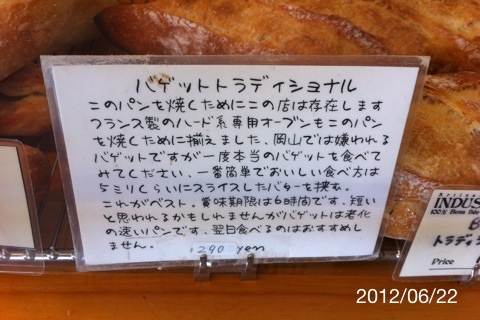 バゲットトラディショナル
このパンを焼くためにこの店は存在します
フランス製のハード系専用オーブンもこのパン
を焼くために揃えました、岡山では嫌われる
バゲットですが一度本当のバゲットを食べて
みてください、一番簡単でおいしい食べ方は
5ミリくらいにスライスしたバターを挟む。
これがベスト。賞味期限は6時間です、短い
と思われるかもしれませんがバゲットは老化
の速いパンです、翌日食べるのはおすすめし
ません。
290 yen
INDUS
100%
トラディ
Price
2012/06/22